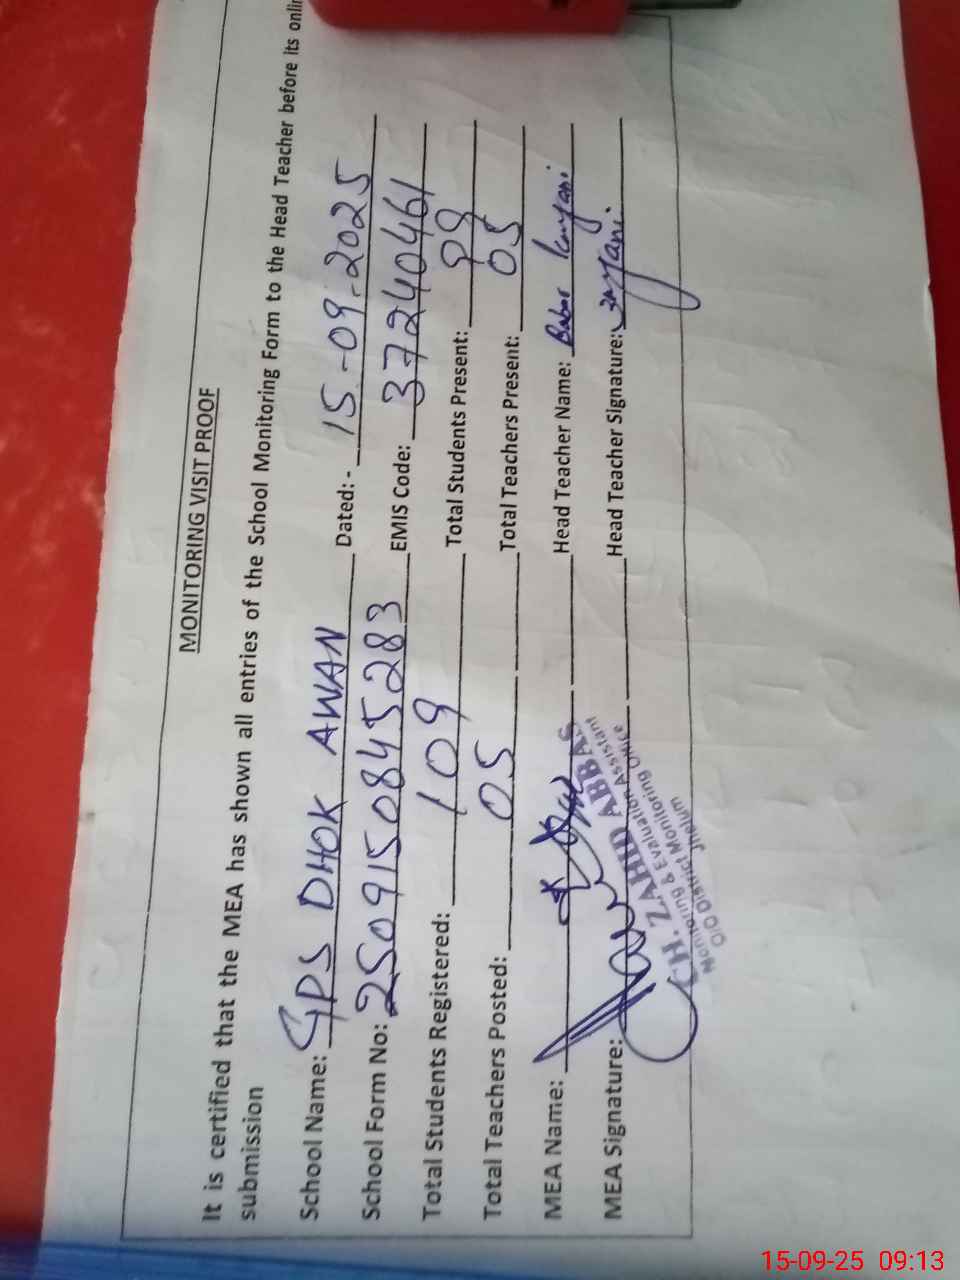 MONITORING VISIT PROOF
It is certified that the MEA has shown all entries of the School Monitoring Form to the Head Teacher before its onlin
submission
School Name: GPS DHOK AWAN Dated:- 15-09-2025
School Form No: 250915084 5283 EMIS Code: 37240461
Total Students Registered: 109 Total Students Present: 99
Total Teachers Posted: 05 Total Teachers Present: 05
MEA Name: Head Teacher Name: Babar Kayani
MEA Signature: Head Teacher Signature:
CH. ZAHID ABBAS
Monitoring & Evaluation Assistant
O/O District Monitoring Office
Jhelum
15-09-25 09:13